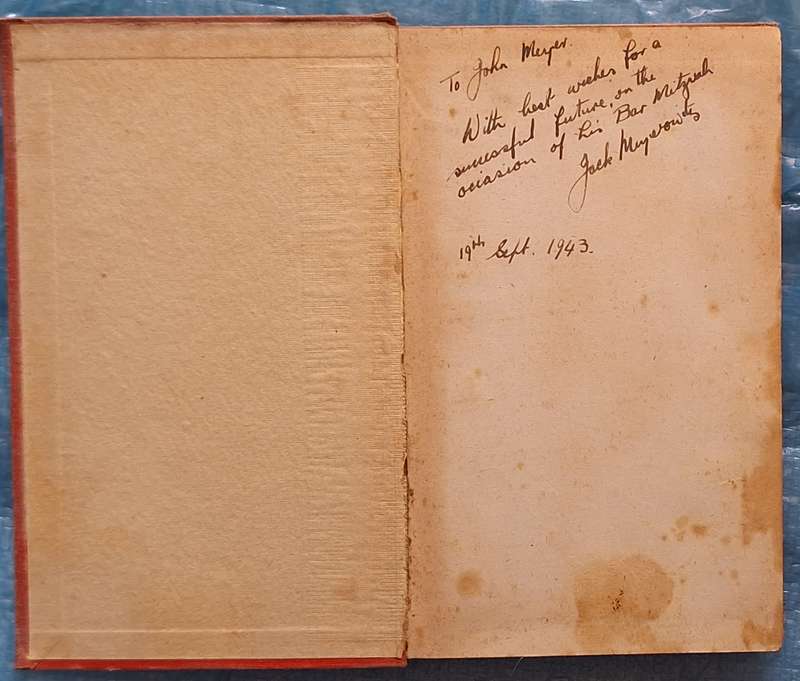 To John Meyer.
With best wishes for a
successful future, on the
occasion of his Bar Mitzvah
Jack Meyerowitz
19th Sept. 1943.